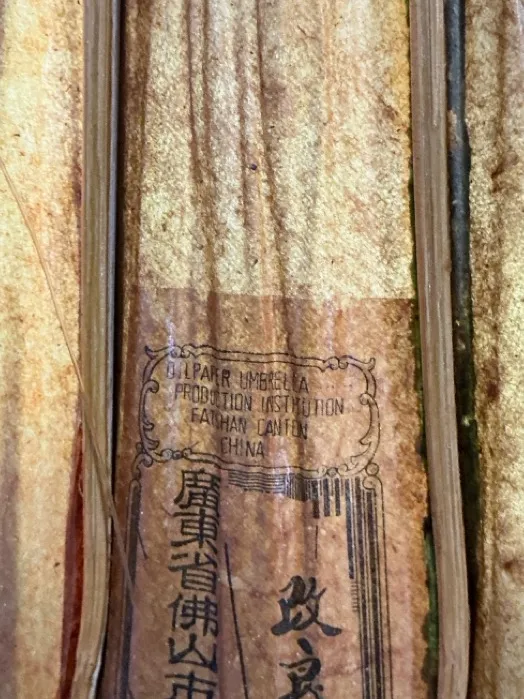 OILPAPER UMBRELLA
PRODUCTION INSTITUTION
FATSHAN CANTON
CHINA
廣東省佛山市
改良